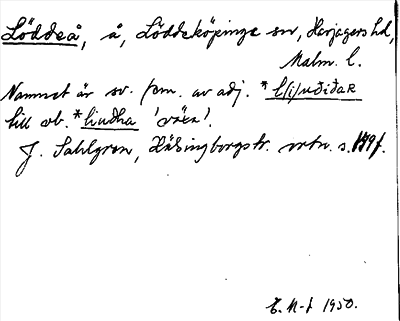 Löddeå, å, Löddeköpinge sn, Harjagers hd,
Malm. l.
Namnet är sv. fem. av adj. *l(i)uðiðaR
till vb. *liudha 'växa'.
J. Sahlgren, Hälsingborgstr. ortn. s. f.
1950.